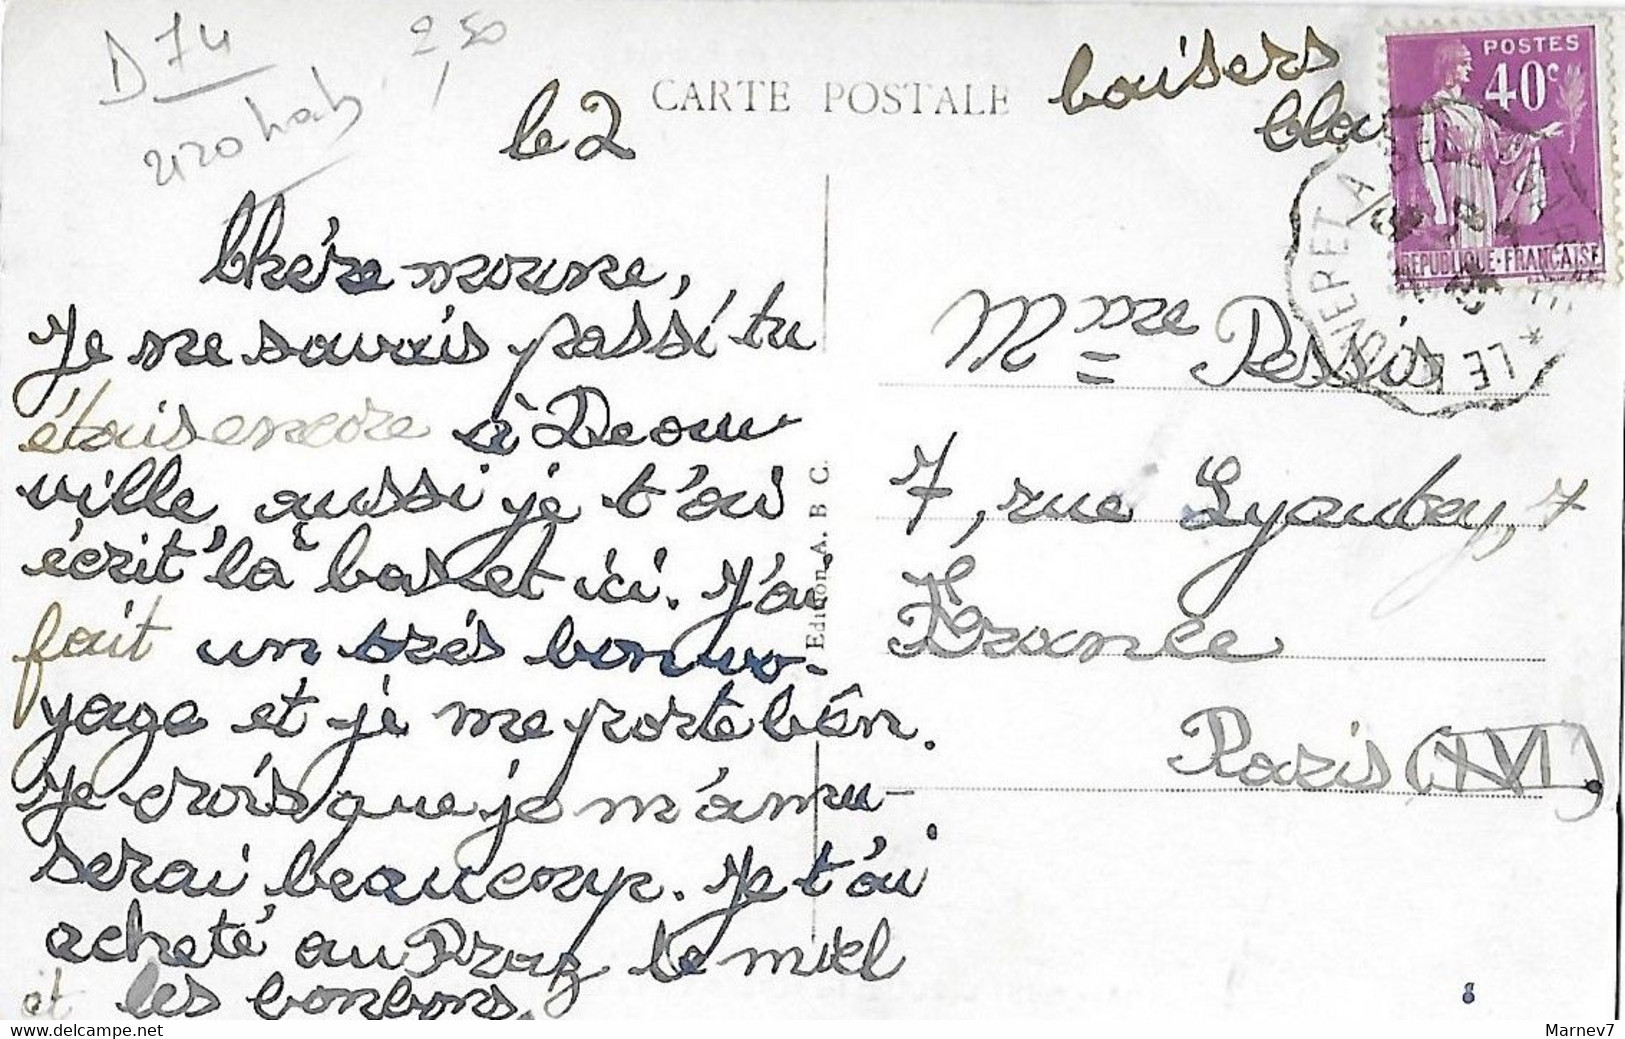 D 74
2,50
420 hab
CARTE POSTALE
le 2
baisers
POSTES
40c
REPUBLIQUE·FRANÇAISE
* LE
Chère moune,
Je ne savais pas si tu
étais encore à Deau-
ville, aussi je t'ai
écrit là bas et ici. J'ai
fait un très bon vo-
yage et je me porte bien.
Je crois que je m'amu-
serai beaucoup. Je t'ai
acheté au Praz le miel
et les bonbons.
Edition A. B C.
Mme Pessis
7, rue Lyautey, 7
France
Paris (XVI).
8
Marnev7